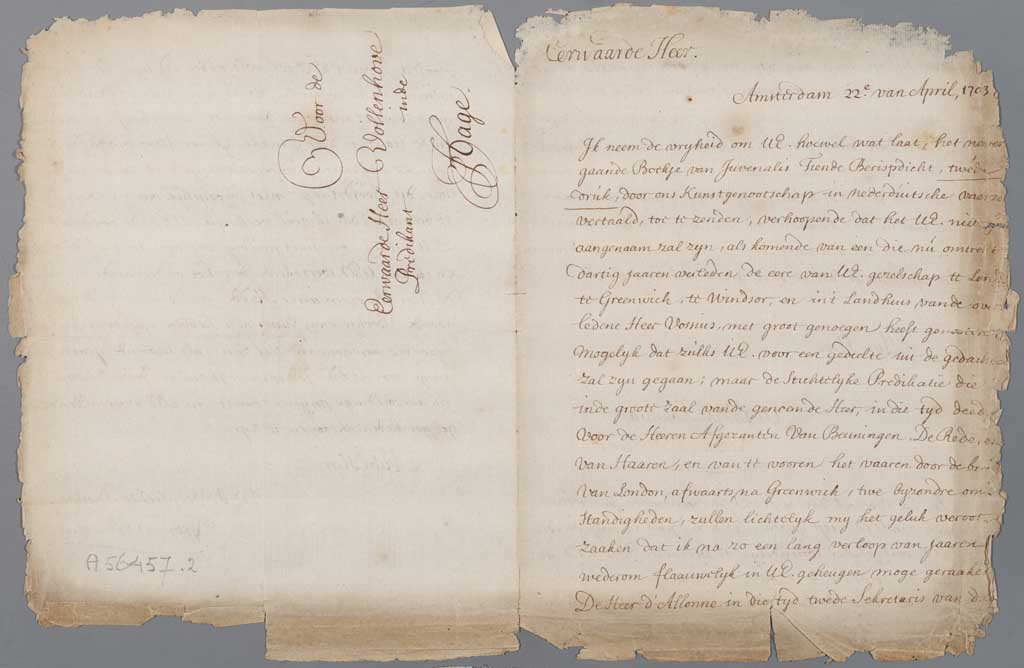 Voor de
Eerwaarde Heer Vollenhove
Predikant inde
Hage.
A 56457.2
Eerwaarde Heer.
Amsterdam 22e. van April, 1703
Ik neem de vryheid om UE. hoewel wat laat, het
gaande Boekje van Juvenalis Tiende Berispdicht, twéé
drúk, door ons Kunstgenootschap in nederduitsche
vertaald, toe te zenden, verhoopende dat het UE. niet
aangenaam zal zyn, als komende van een die nú omtrent
dartig jaaren verleden de eere van UE. gezelschap te
te Greenwick, te Windsor, en in't Landhuis vande
ledene Heer Vossius, met groot genoegen heeft
Mogelyk dat zúlks UE. voor een gedeelte uit de
zal zyn gegaan; maar de Stichtelyke Predikatie die
inde groote zaal vande genoemde Heer, in die tyd deed
voor de Heeren Afgezanten Van Beuningen, De Rede, en
van Haaren, en van te vooren het vaaren door de
van London, afwaarts, na Greenwick, twe byzondre om-
standigheden, zullen lichtelyk my het geluk veroor-
zaaken dat ik na zo een lang verloop van jaaren
wederom flaauwelyk in UE. geheugen moge geraaken
De Heer d'Allonne in die tyd twede Sekretaris van